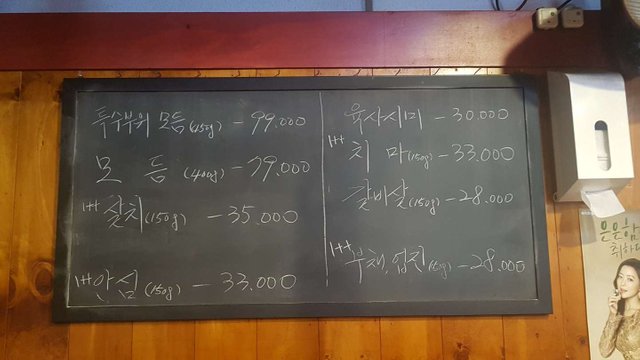 특수부위 모듬(450g) - 99.000
모 듬 (400g) - 79.000
1++ 살치(150g) - 35.000
1++ 안심(150g) - 33.000
육사시미 - 30.000
1++ 치 마(150g) - 33.000
갈비살(150g) - 28.000
1++ 부채, 업진(150g) - 28.000
은은함
취하다